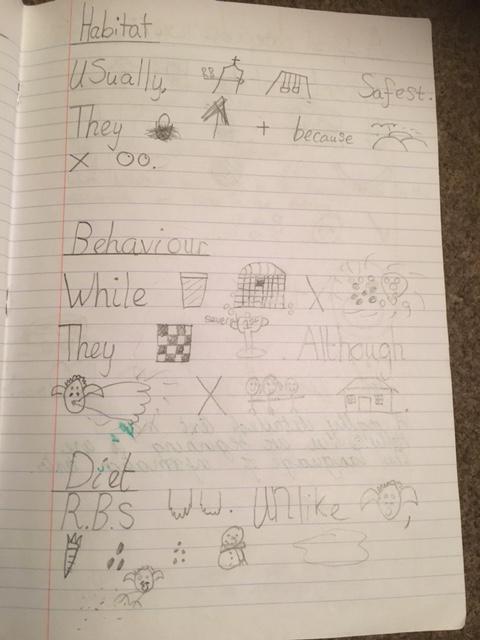 Habitat
Usually, Safest.
They + because
X OO.
Behaviour
While X
They Although
X
Diet
R.B.S . Unlike ,